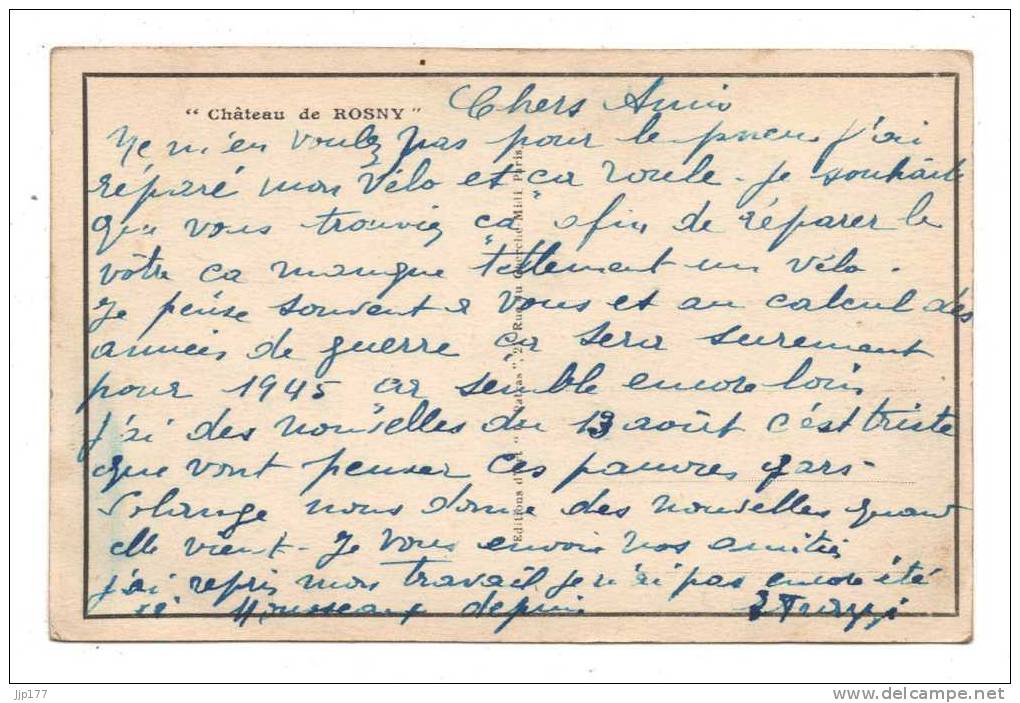 “ Château de ROSNY ”
Chers Amis
Ne m'en voulez pas pour le pneu j'ai
réparé mon vélo et ça roule. Je souhaite
que vous trouviez ça afin de réparer le
vôtre ça manque tellement un vélo.
Je pense souvent à vous et au calcul des
années de guerre ça sera surement
pour 1945 ça semble encore loin
j'ai des nouvelles du 13 août c'est triste
que vont penser ces pauvres gars
Solange nous donne des nouvelles quand
elle vient. Je vous envoie nos amitiés
j'ai repris mon travail je n'ai pas encore été
Mousseaux depuis
Editions d'Art " Patras ", 2 Rue du Cherche-Midi Paris
jjp177
www.delcampe.net